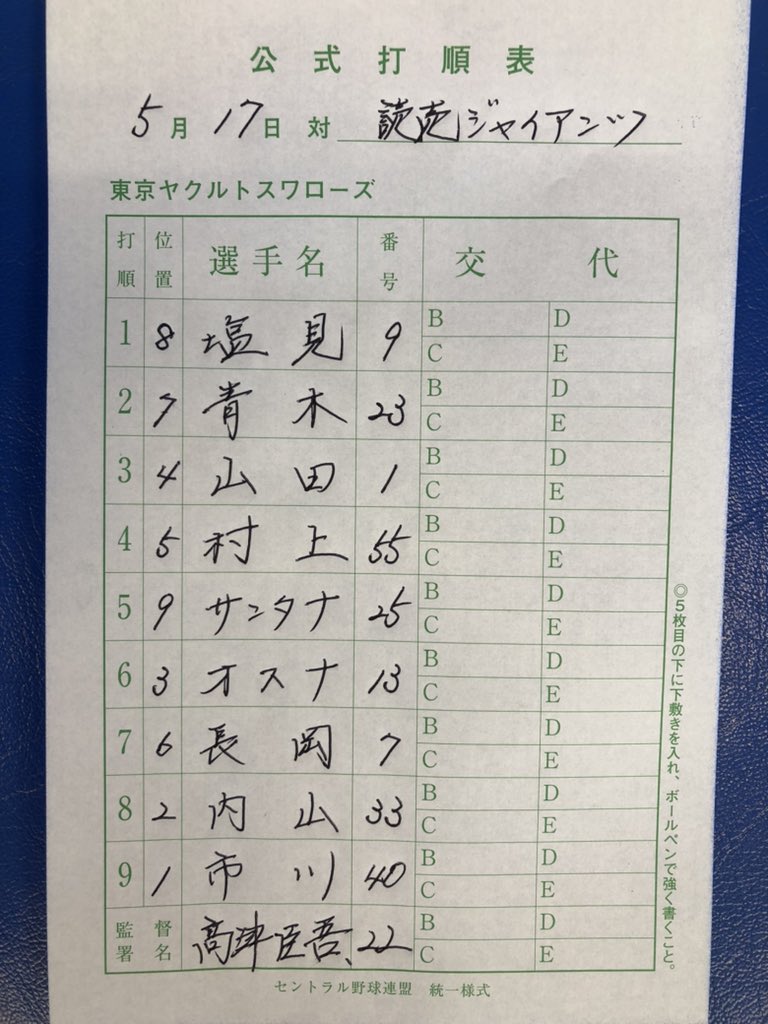 公式打順表
5月17日 対 読売ジャイアンツ
東京ヤクルトスワローズ
打順 位置 選手名 番号 交代
1 8 塩見 9 B D
C E
2 7 青木 23 B D
C E
3 4 山田 1 B D
C E
4 5 村上 55 B D
C E
5 9 サンタナ 25 B D
C E
6 3 オスナ 13 B D
C E
7 6 長岡 7 B D
C E
8 2 内山 33 B D
C E
9 1 市川 40 B D
C E
監督署名 高津臣吾、22 B D
C E
◎5枚目の下に下敷きを入れ、ボールペンで強く書くこと。
セントラル野球連盟 統一様式